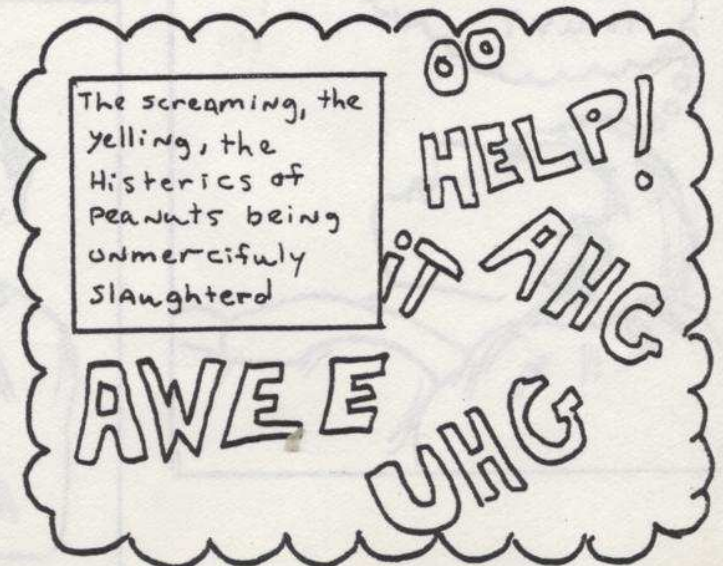 The screaming, the
yelling, the
Histerics of
peanuts being
unmercifuly
slaughterd
OO
HELP!
iT
AHG
AWEE
UHG